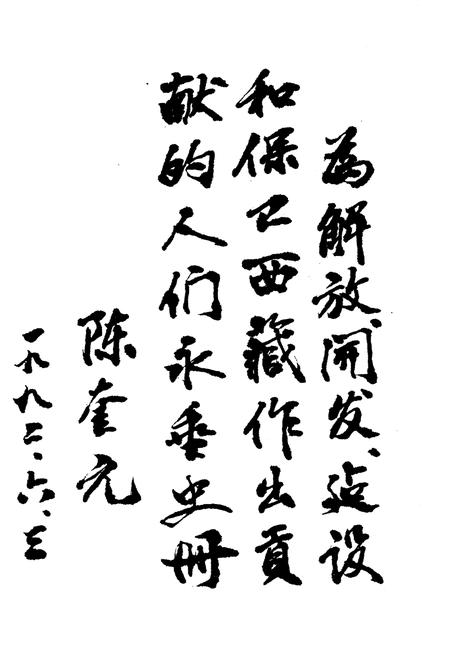 为解放、开发、建设
和保卫西藏作出贡
献的人们永垂史册
陈奎元
一九九二、六、三